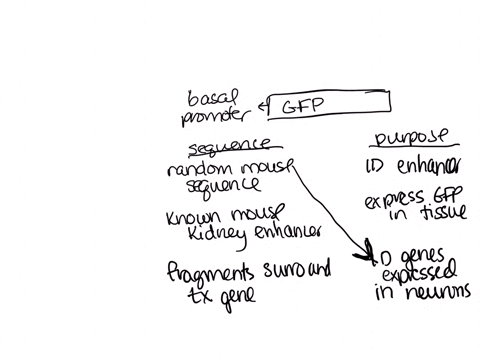 basal
promoter
GFP
sequence
purpose
random mouse
sequence
ID enhancer
express GFP
in tissue
known mouse
kidney enhancer
ID genes
expressed
in neurons
fragments surround
tx gene